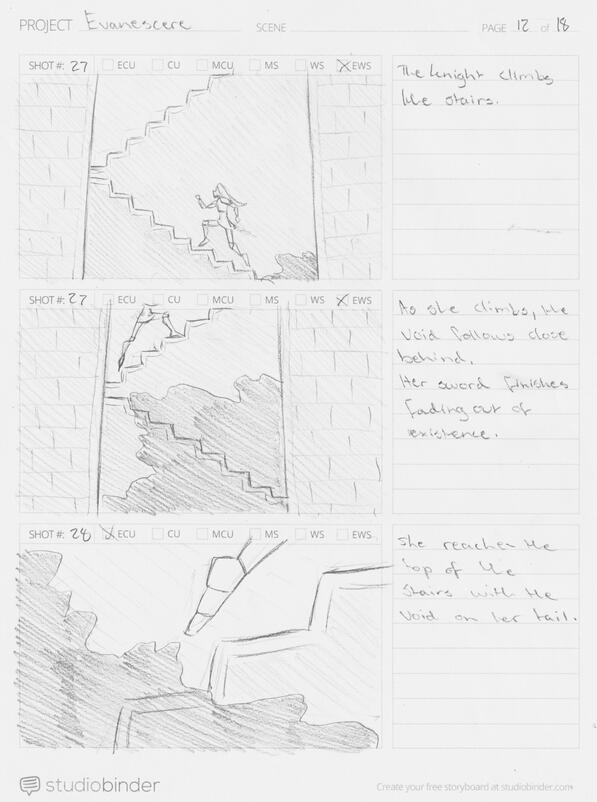 PROJECT Evanescere SCENE PAGE 12 of 18
SHOT #: 27 ECU CU MCU MS WS EWS
The knight climbs
the stairs.
SHOT #: 27 ECU CU MCU MS WS EWS
As she climbs, the
void follows close
behind.
Her sword finishes
fading out of
existence.
SHOT #: 28 ECU CU MCU MS WS EWS
She reaches the
top of the
stairs with the
void on her tail.
studiobinder
Create your free storyboard at studiobinder.com.